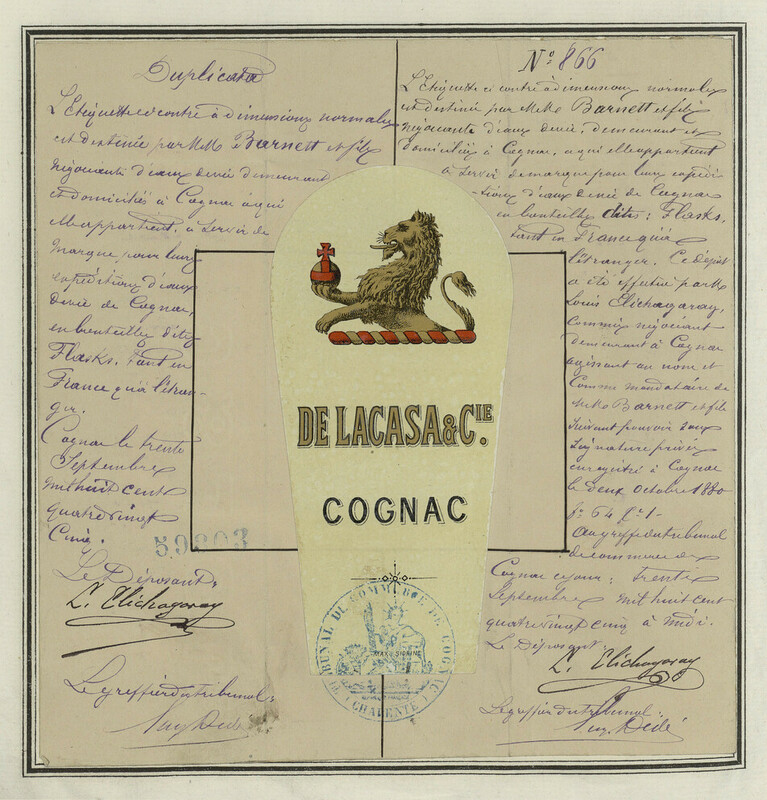 Duplicata
L'Etiquette ci contre à dimensions normales
est destinée par MM. Barnett et fils
négociants d'eaux de vie demeurant
et domiciliés à Cognac à qui
elle appartient, à servir de
marque pour leurs
expéditions d'eaux
de vie de Cognac,
en bouteilles dites
Flasks, tant en
France qu'à l'étran-
ger.
Cognac le trente
Septembre
mil huit cent
quatre vingt
Cinq.
59803
Le Déposant:
L. Elichagaray
Le greffier du tribunal:
DE LACASA & CIE.
COGNAC
TRIBUNAL DU COMMERCE DE COGNAC
CHARENTE
No 866
L'Etiquette ci contre à dimensions normales
est destinée par MM. Barnett et fils
négociants d'eaux de vie, demeurant et
domiciliés à Cognac, a qui elle appartient
à servir de marque pour leurs expédi
tions d'eaux de vie de Cognac
en bouteilles dites: Flasks,
tant en France qu'à
l'étranger. Ce dépôt
a été effectué par M.
Louis Elichagaray,
Commis négociant
demeurant à Cognac
agissant au nom et
comme mandataire de
MM. Barnett et fils
suivant pouvoir sous
signature privée
enregistré à Cognac
le deux Octobre 1880
fo 64
au greffe du tribunal
de commerce de
Cognac ce jour: trente
Septembre mil huit cent
quatre vingt cinq à midi.
Le Déposant
L. Elichagaray
Le greffier du tribunal: